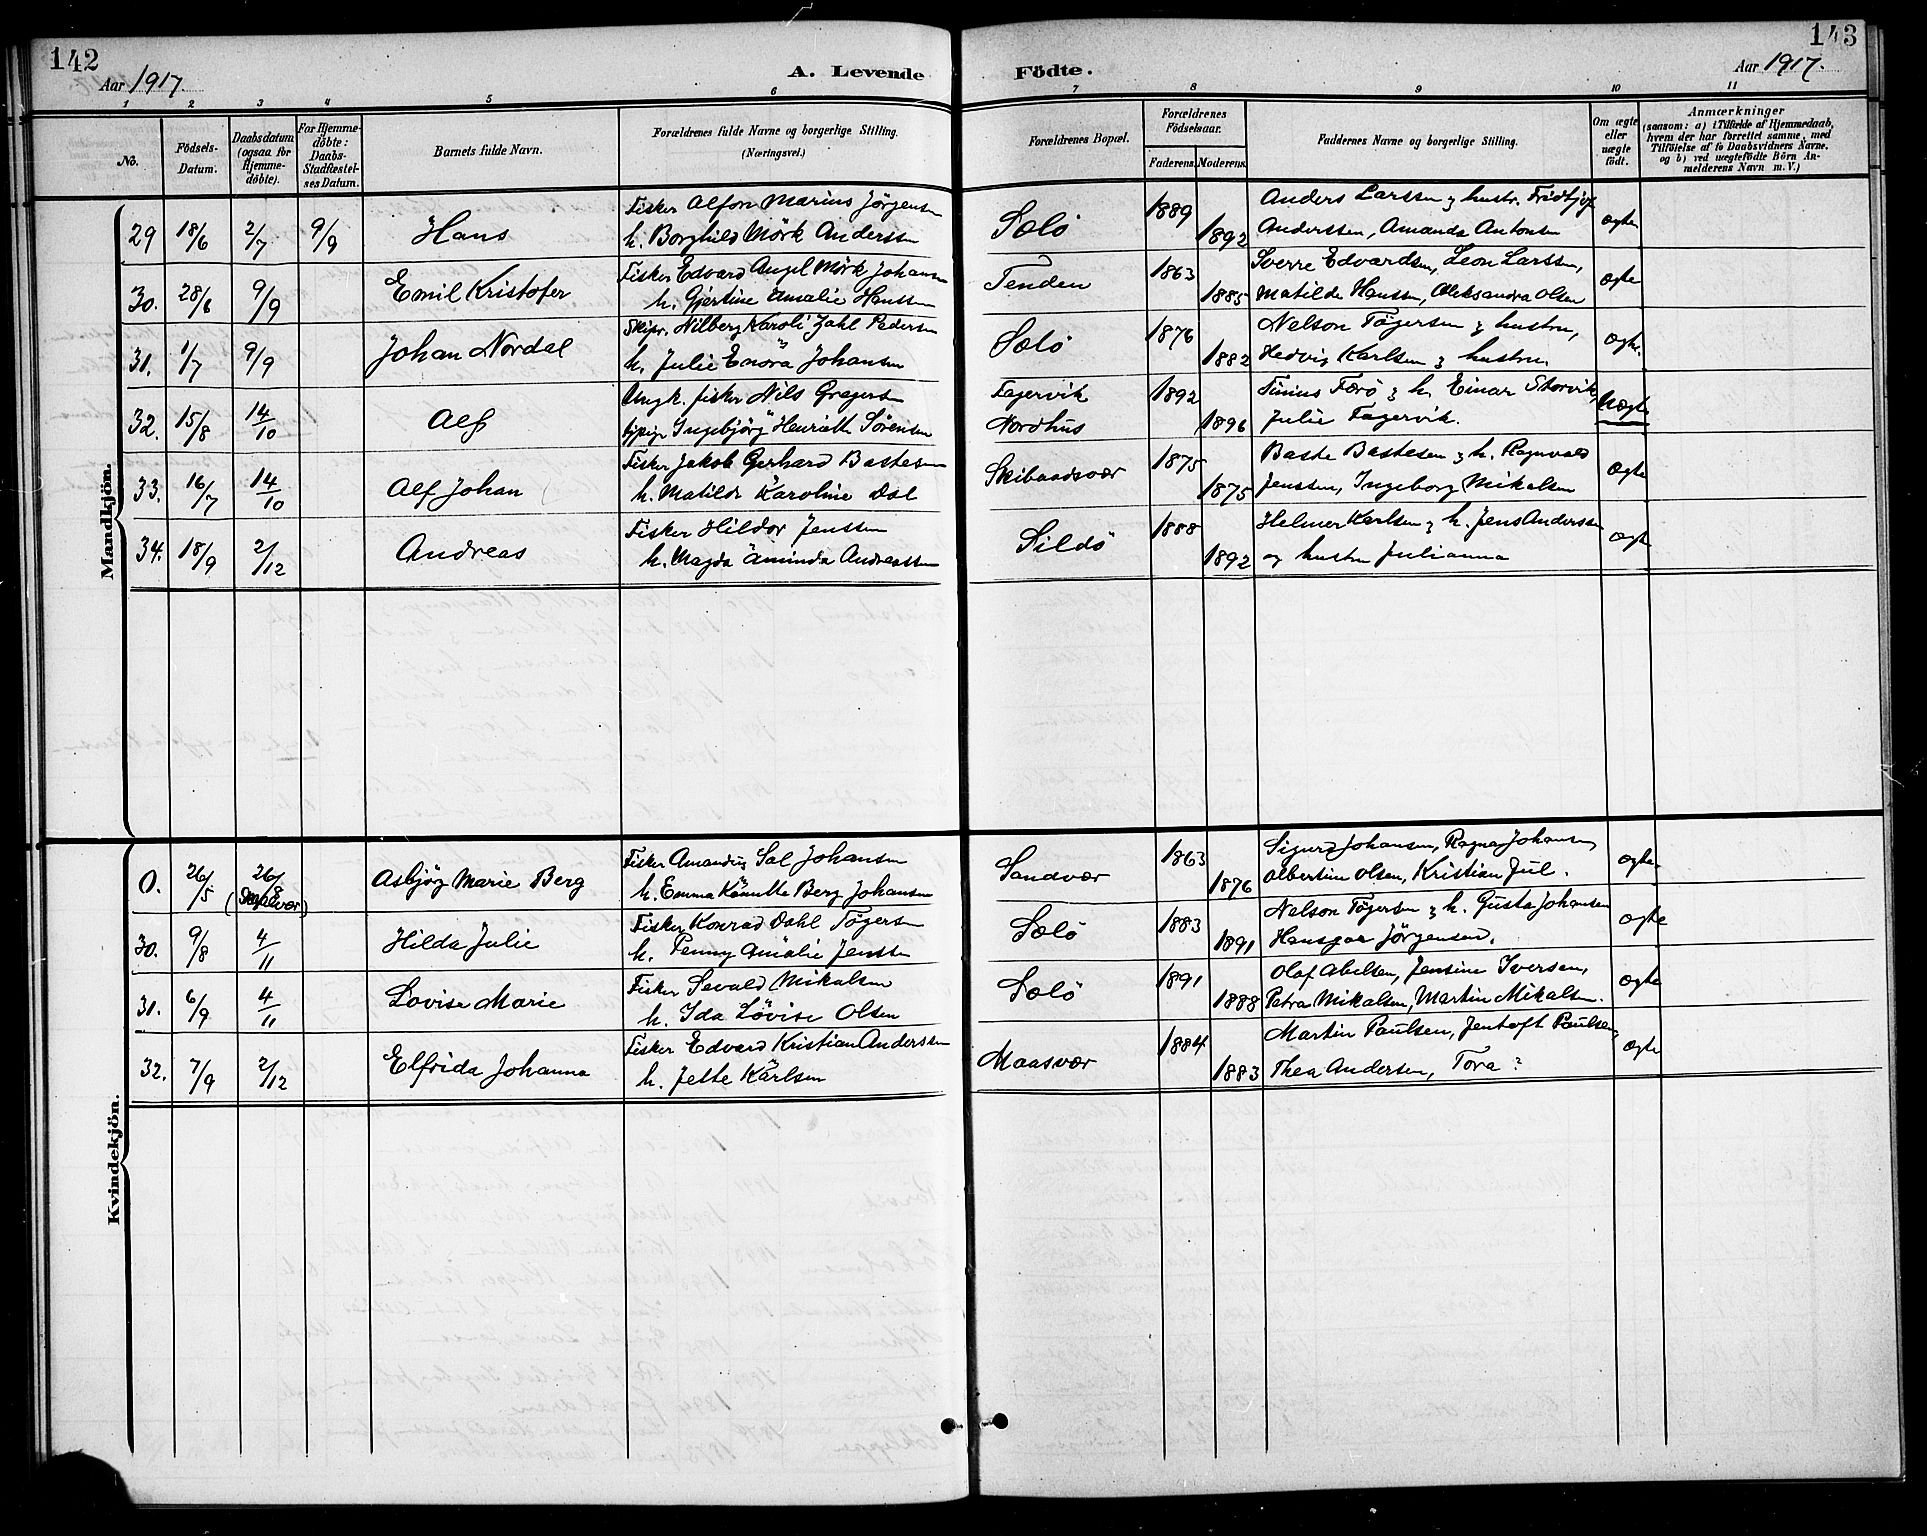 142
Aar 1917.
A. Levende
Födte.
Aar 1917.
143
1 2 3 4 5 6 7 8 9 10 11
No.
Födsels-Datum.
Daabsdatum (ogsaa for Hjemme-döbte).
For Hjemme-döbte: Daabs-Stadfæstel-ses Datum.
Barnets fulde Navn.
Forældrenes fulde Navne og borgerlige Stilling.
(Næringsvei.)
Forældrenes Bopæl.
Forældrenes Födselsaar.
Faderens. Moderens.
Faddernes Navne og borgerlige Stilling.
Om ægte eller uægte födt.
Anmærkninger
(saasom: a) i Tilfælde af Hjemmedaab, hvem der har forrettet samme, med Tilföielse af to Daabsvidners Navne, og b) ved uægtefödte Börn An-melderens Navn m. V.)
Mandkjön.
29 18/6 2/7 9/9 Hans
Fisker Alfon Marius Jörgensen
h. Borghild Mörk Anderssen
Sælö 1889 1892
Anders Larssen & hustr. Fridtjof
Anderssen, Amanda Antonsen
ægte
30. 28/6 9/9 Emil Kristofer
Fisker Edvard Angel Mörk Johansen
h. Gjertine Amalie Hanssen
Tenden 1863 1885
Sverre Edvardsen, Leon Larssen,
Matilde Hanssen, Aleksandra Olsen
ægte
31. 1/7 9/9 Johan Nordal
Skipr. Nilberg Karoli Zahl Pedersen
h. Julie Enora Johansen
Sælö 1876 1882
Nelson Tögersen & hustru,
Hedvig Karlsen & hustru.
ægte.
32. 15/8 14/10 Alf
Ungk. fisker Nils Gregersen
Ingebjörg Henriette Sörensen
Fagervik
Nordhus
1892 1896
Tinius Færö & h. Einar Storvik
Julie Fagervik.
Uægte
33. 16/7 14/10 Alf Johan
Fisker Jakob Gerhard Bastesen
h. Matilde Karoline Dal
Skibaadsvær 1875 1875
Baste Bastesen & h. Ragnvald
Jenssen, Ingeborg Mikalsen
ægte
34. 18/9 2/12 Andreas
Fisker Hildor Jenssen
h. Magda Aminda Andreassen
Sildö 1888 1892
Helmer Karlsen & h. Jens Anderssen
og hustru Julianna
ægte
Kvindekjön.
0. 26/5 26/8 Asbjög Marie Berg
Fisker Amandus Sal Johansen
h. Emma Kamitte Berg Johansen
Sandvær 1863 1876
Sigurd Johansen, Ragna Johansen,
Albertine Olsen, Kristian Jul.
ægte
30. 9/8 4/11 Hilda Julie
Fisker Konrad Dahl Tögersen
h. Penny Amalie Jenssen
Sælö 1883 1891
Nelson Tögersen & h. Gusta Johansen
Hansgar Jörgensen.
ægte
31. 6/9 4/11 Lovise Marie
Fisker Sevald Mikalsen
h. Ida Lovise Olsen
Sælö 1891 1888
Olaf Abelsen, Jensine Iversen,
Petra Mikalsen, Martin Mikalsen.
ægte
32. 7/9 2/12 Elfrida Johanna
Fisker Edvard Kristian Anderssen
h. Jette Karlsen
Maasvær 1884 1883
Martin Paulsen, Jentoft Paulsen,
Thea Andersen, Tora ?
ægte